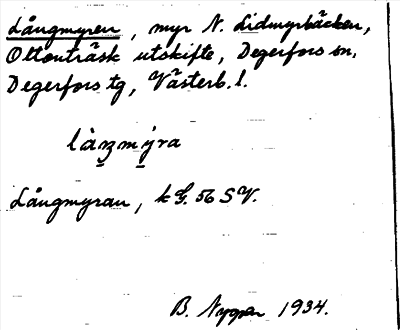 Långmyren, myr N. Lidmyrbäcken,
Ottonträsk utskifte, Degerfors sn,
Degerfors tg, Västerb. l.
làŋmýra
Långmyran, k G. 56 SV.
B. Nygren 1934.